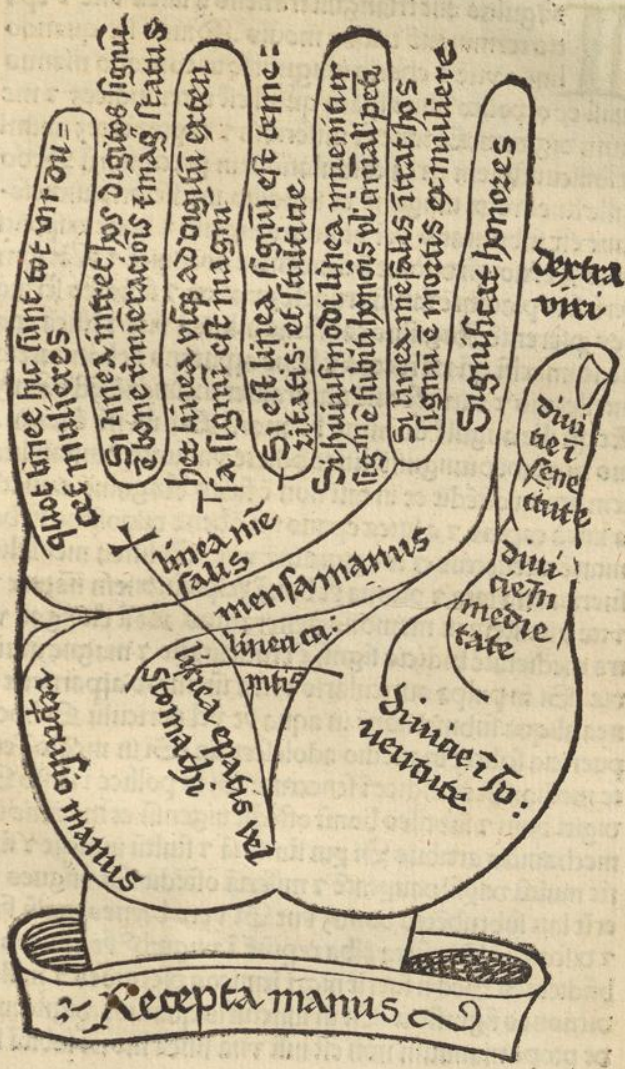 dextra
viri
quot linee hic sunt tot vir du=
cet mulieres
Si linea intret hos digitos signũ
ẽ bone
status
hec linea vsqꝫ ad digitũ exten
sa signũ est magni
Si est linea signũ est teme=
ritatis et stultitie
Si huiusmodi linea inueniatur
Si linea mẽsalis ĩtrat hos
signũ ẽ mortis ex muliere
Significat honores
diui
tie ĩ
sene
ctute
diui
cie ĩn
medie
tate
diuicie ĩ
uentute
linea mẽ
salis
mensa manus
linea ca:
pitis
linea epatis vel
stomachi
manus
Recepta manus